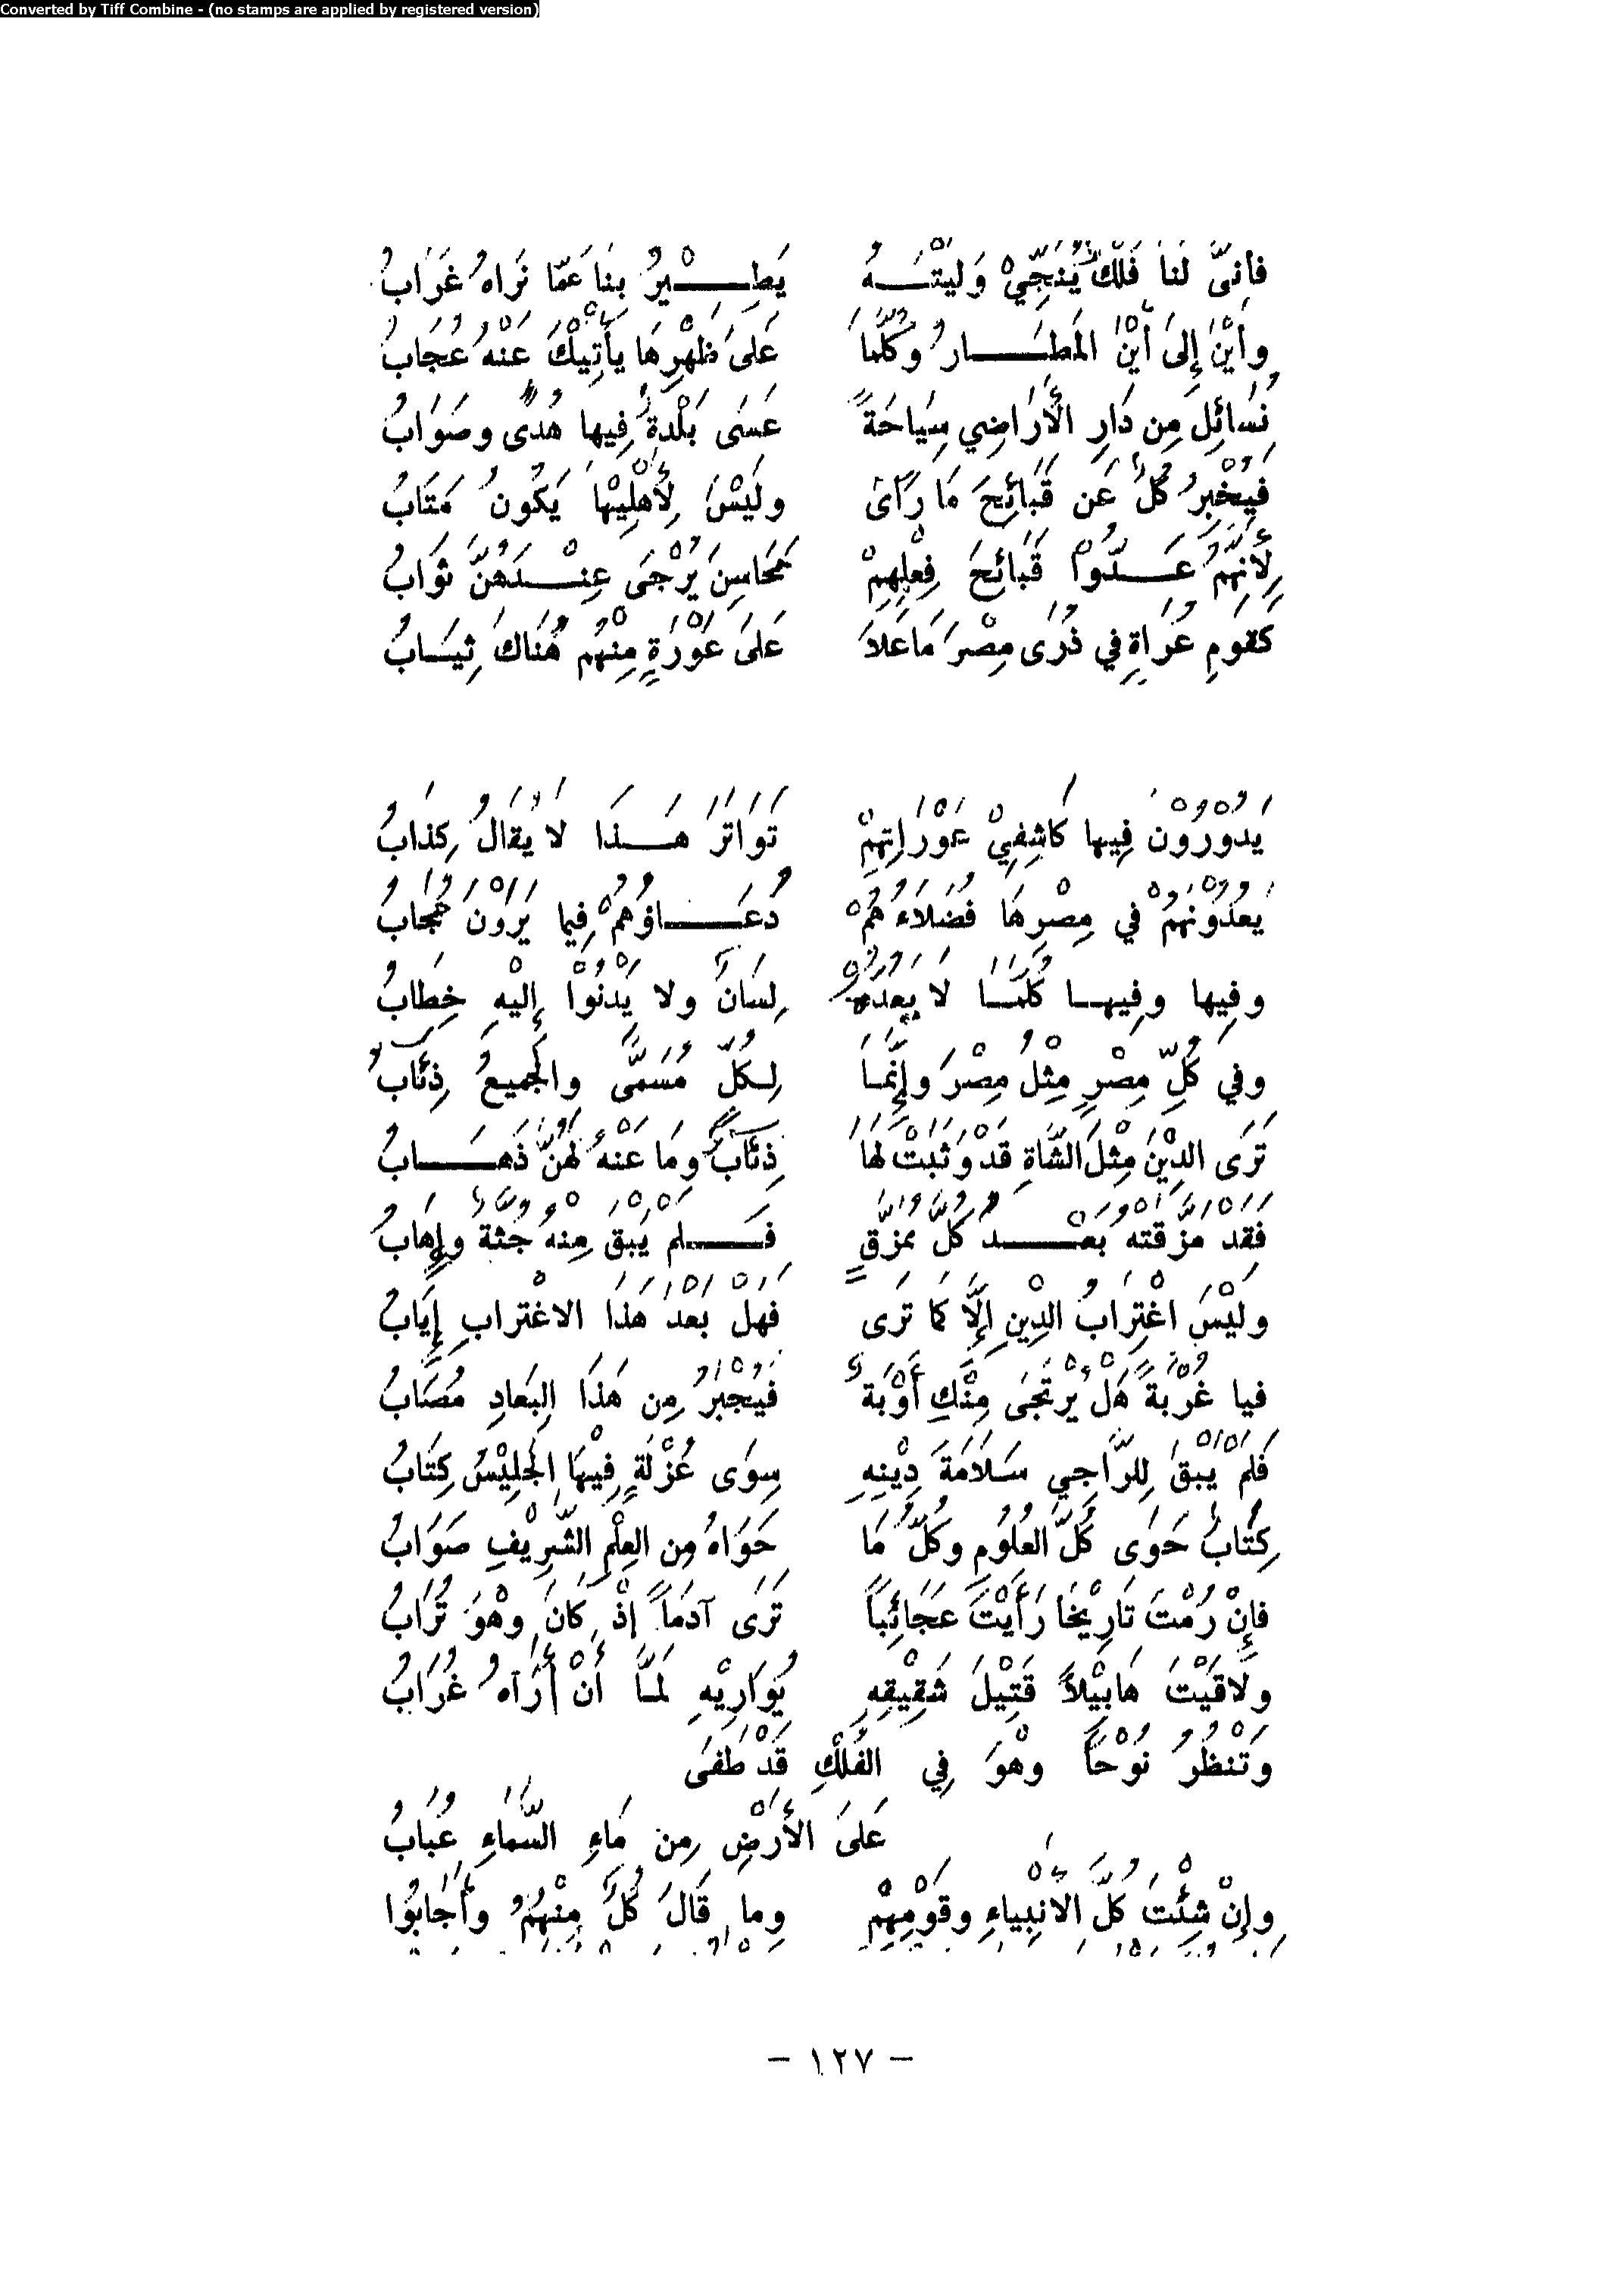 Converted by Tiff Combine - (no stamps are applied by registered version)
فَأَنَّى لَنَا فُلْكٌ يُنَجِّيْ وَلَيْتَـــهُ يَطِـــيْرُ بِنَا عَمَّا نَرَاهُ غُرَابُ
وأَيْنَ إِلىَ أَيْنَ المَطَـــارُ وكُلَّمَا عَلىَ ظَهْرِهَا يأْتِيْكَ عَنْهُ عُجَابُ
نُسَائِلُ مِن دَارِ الأَرَاضِي سِيَاحَةً عَسَى بَلْدَةٌ فِيها هُدًى وصَوَابُ
فَيُخْبِرُ كُلٌّ عَن قَبَائِحَ مَا رَأَى ولَيْسَ لِأَهْلِيْهَا يَكُونُ مَتَابُ
لِأَنَّهُمُ عَـــدُّوْا قَبَائِحَ فِعْلِهِمْ مَحَاسِنَ يُرْجَى عِنْـــدَهُنَّ ثَوَابُ
كَقَومٍ عُرَاةٍ في ذُرَى مِصْرَ مَا عَلاَ عَلىَ عَوْرَةٍ مِنْهُمْ هُنَاكَ ثِيَــابُ
يَدُوْرُوْنَ فِيها كَاشِفِيْ عَوْرَاتِهِمْ تَوَاتَرَ هَـــذَا لا يُقَالُ كِذَابُ
يَعُدُّوْنَهُمْ في مِصْرِهَا فُضَلاَءَهُمْ دُعَـــاؤُهُمُ فِيما يَرَوْنَ مُجَابُ
وفِيها وفِيهــا كُلَّمَــا لا يَعُدُّهُ لِسَانٌ ولا يَدْنُوْا إِلَيْهِ خِطَابُ
وفي كُلِّ مِصْرٍ مِثْلُ مِصْرَ وإِنَّمَــا لِكُلٍّ مُسَمًّى والجَمِيعُ ذِئَابُ
تَرَى الدِّيْنَ مِثْلَ الشَّاةِ قَدْ وَثَبَتْ لَهَا ذِئَابٌ ومَا عَنْهُ لَهُنَّ ذَهَـــابُ
فَقَدْ مَزَّقَتْهُ بَعْـــدُ كُلَّ مُمَزَّقٍ فَـــلَمْ يَبْقَ مِنْهُ جُثَّةٌ وإِهَابُ
ولَيْسَ اغْتِرَابُ الدِّينِ إِلَّا كَمَا تَرَى فَهَلْ بَعْدَ هَذَا الاغْتِرَابِ إِيَابُ
فيا غُرْبَةً هَلْ يُرْتَجَى مِنْكِ أَوْبَةٌ فَيُجْبَرُ مِن هَذَا البِعَادِ مُصَابُ
فَلَمْ يَبْقَ لِلرَّاجِي سَلاَمَةَ دِيْنِهِ سِوَى عُزْلَةٍ فِيْهَا الجَلِيْسُ كِتَابُ
كِتَابٌ حَوَى كُلَّ العُلُومِ وكُلُّ مَا حَوَاهُ مِن العِلْمِ الشَّرِيْفِ صَوَابُ
فَإِنْ رُمْتَ تَارِيْخًا رَأَيْتَ عَجَائِبًا تَرَى آدَمًا إِذْ كَانَ وهْوَ تُرَابُ
ولاَقَيْتَ هَابِيْلاً قَتِيْلَ شَقِيْقِهِ يُوَارِيْهِ لَمَّا أَنْ أَرَاهُ غُرَابُ
وَتَنْظُرُ نُوْحًا وهْوَ في الفُلْكِ قَدْ طَفَى
عَلىَ الأَرْضِ مِن مَاءِ السَّمَاءِ عُبَابُ
وإِنْ شِئْتَ كُلَّ الأَنْبِياءِ وقَوْمِهِمْ وما قَالَ كُلٌّ مِنْهُمُ وأَجَابُوْا
– ١٢٧ –